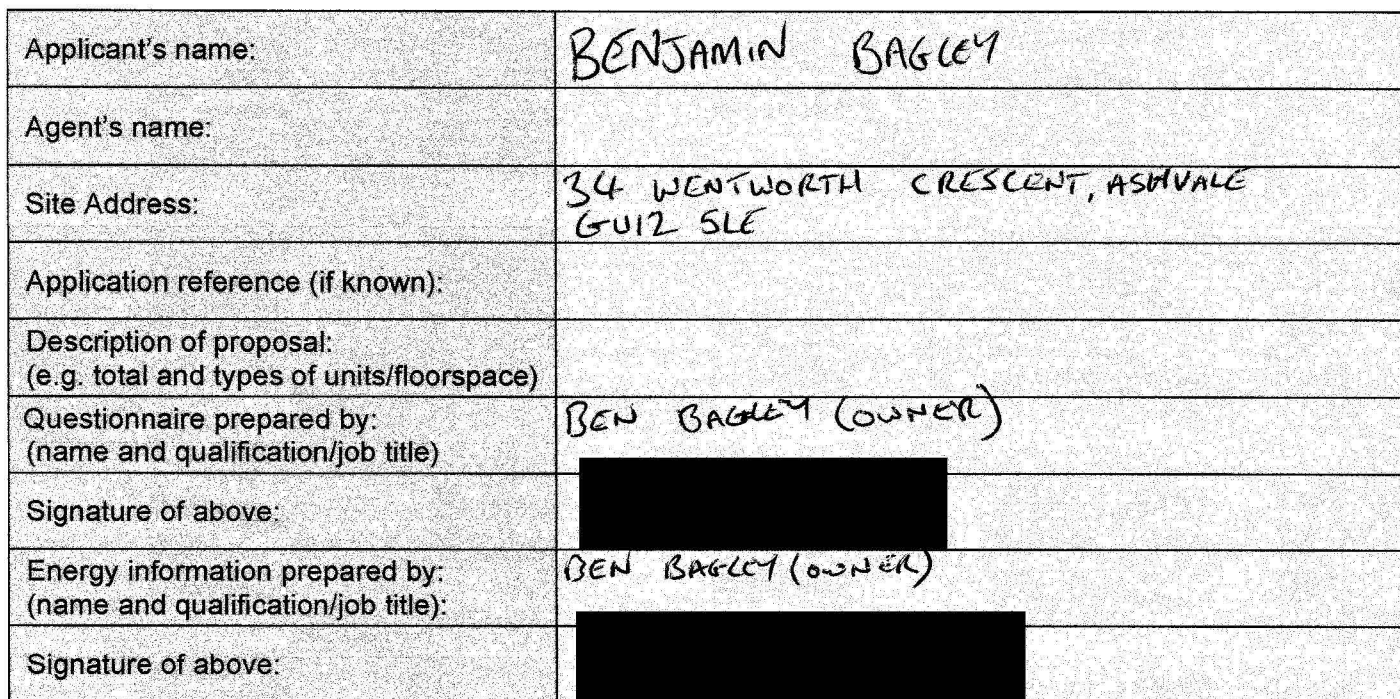 Applicant's name: BENJAMIN BAGLEY
Agent's name:
Site Address: 34 WENTWORTH CRESCENT, ASHVALE
GU12 5LE
Application reference (if known):
Description of proposal:
(e.g. total and types of units/floorspace)
Questionnaire prepared by: BEN BAGLEY (OWNER)
(name and qualification/job title)
Signature of above:
Energy information prepared by: BEN BAGLEY (OWNER)
(name and qualification/job title):
Signature of above: